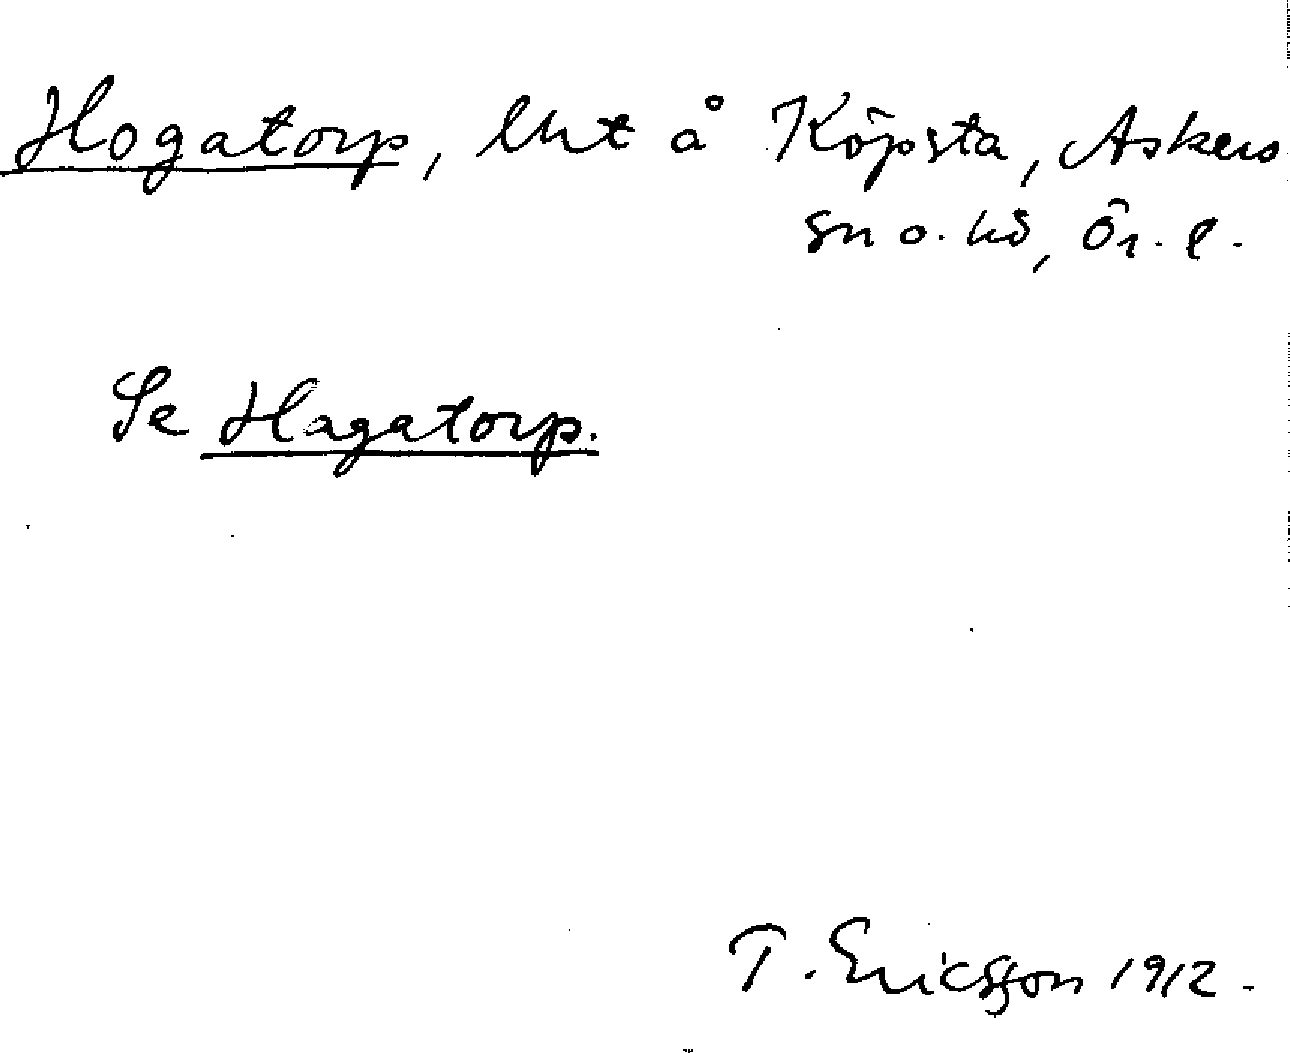 Hogatorp, lht å Köpsta, Askers
sn o. hd, Ör. l.
Se Hagatorp.
T. Ericsson 1912.